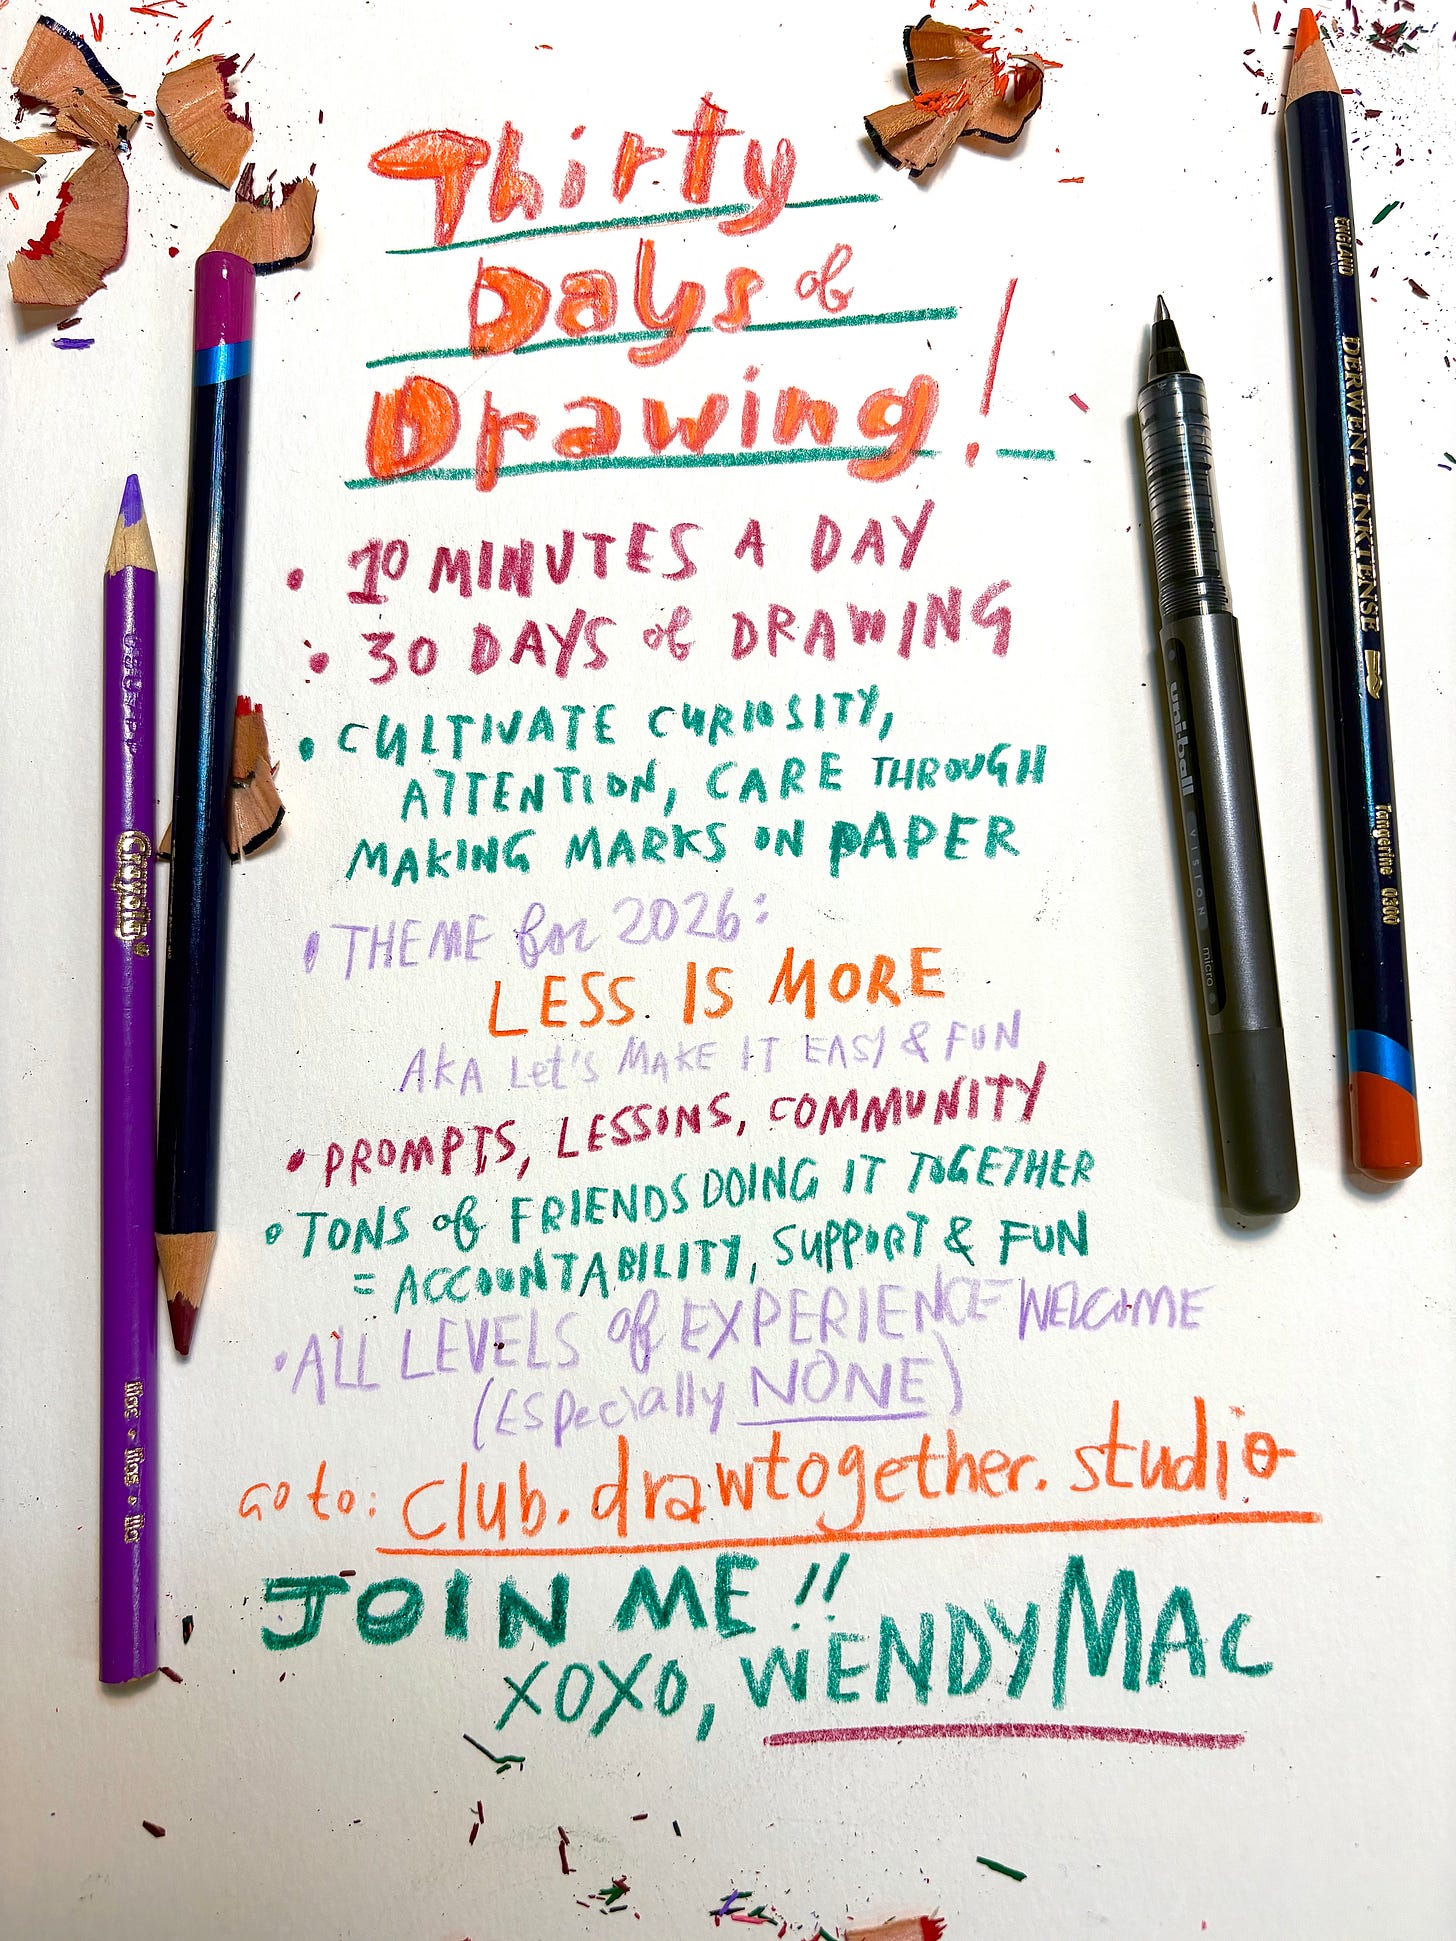 Thirty
Days of
Drawing!
• 10 MINUTES A DAY
• 30 DAYS of DRAWING
• CULTIVATE CURIOSITY,
ATTENTION, CARE THROUGH
MAKING MARKS ON PAPER
• THEME for 2026:
LESS IS MORE
AKA Let's MAKE IT EASY & FUN
• PROMPTS, LESSONS, COMMUNITY
• TONS of FRIENDS DOING IT TOGETHER
= ACCOUNTABILITY, SUPPORT & FUN
• ALL LEVELS of EXPERIENCE WELCOME
(Especially NONE)
Go to: club.drawtogether.studio
JOIN ME!!
XOXO, WENDYMAC
Crayola
lilac • lilas • lila
uniball VISION micro
ENGLAND DERWENT • INKTENSE Tangerine 0300